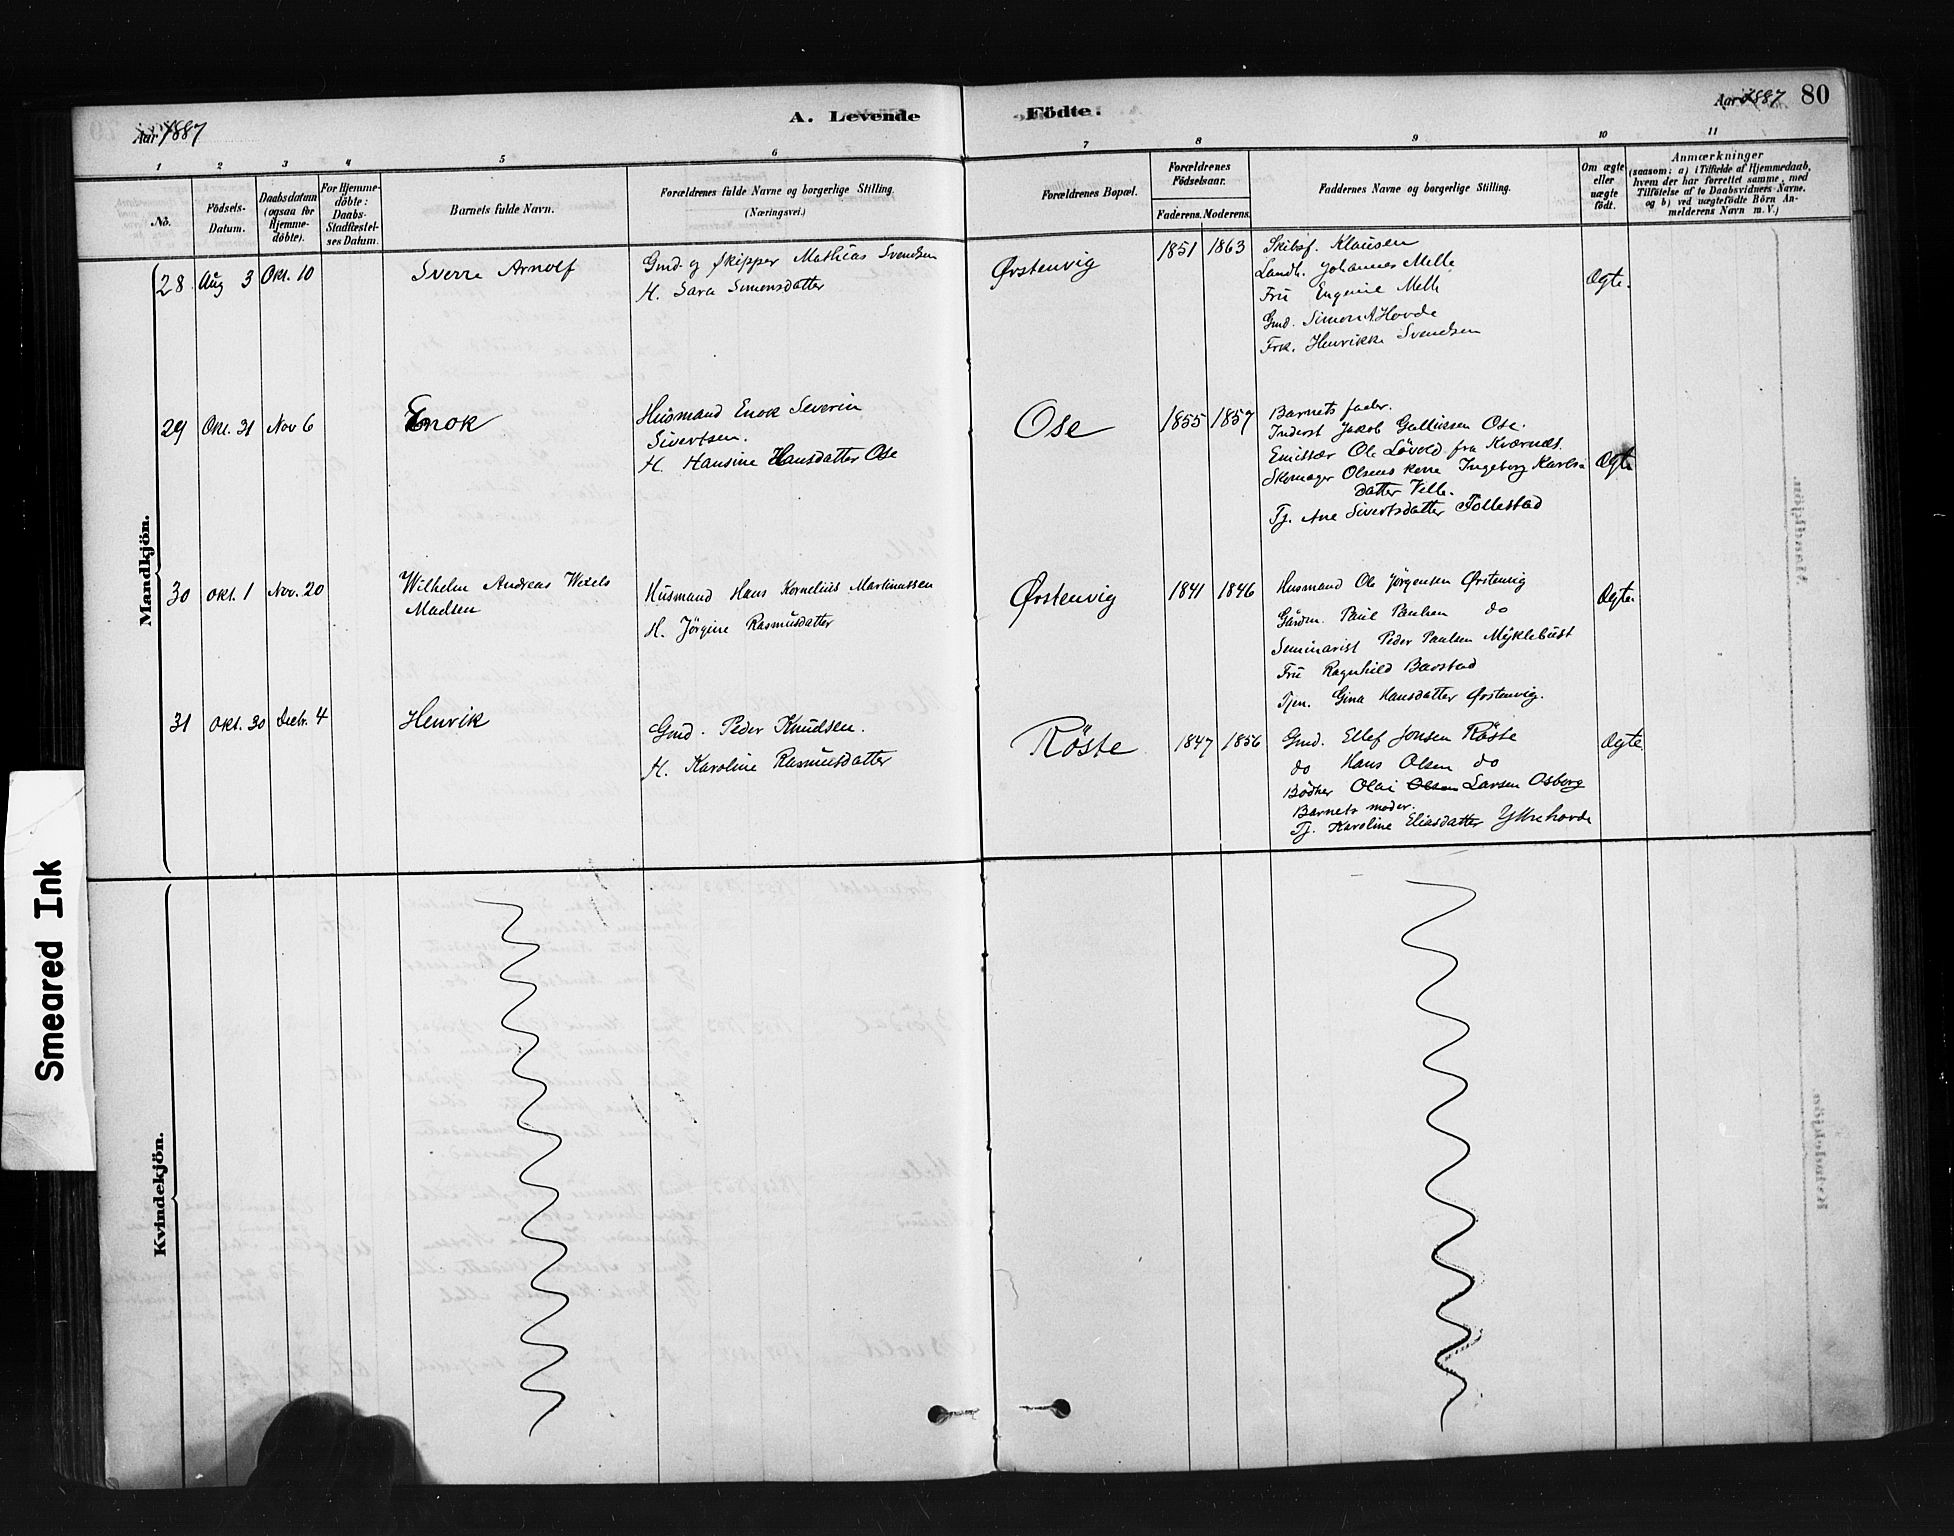 Aar 1887
A. Levende Födte.
Aar 1887 80
1 2 3 4 5 6 7 8 9 10 11
No.
Födsels-Datum.
Daabsdatum (ogsaa for Hjemme-döbte).
For Hjemme-döbte: Daabs-Stadfæstel-ses Datum.
Barnets fulde Navn.
Forældrenes fulde Navne og borgerlige Stilling.
(Næringsvei.)
Forældrenes Bopæl.
Forældrenes Födselsaar.
Faderens. Moderens.
Faddernes Navne og borgerlige Stilling.
Om ægte eller uægte födt.
Anmærkninger
(saasom: a) i Tilfælde af Hjemmedaab,
hvem der har forrettet samme, med
Tilföielse af to Daabsvidners Navne.
og b) ved uægtefödte Börn An-
melderens Navn m. V.)
Mandkjön.
28 Aug 3 Okt. 10 Sverre Arnolf
Gmd. og skipper Mathias Svendsen
H. Sara Simonsdatter
Ørstenvig 1851 1863
Skibsf. Klausen
Landh. Johannes Melle
Fru Eugenie Melle
Gmd. Simon A Hovde
Frk. Henrikke Svendsen
Ægte.
29 Okt. 31 Nov 6 Enok
Husmand Enok Severin
Sivertsen.
H. Hansine Hansdatter Ose
Ose 1855 1857
Barnets fader.
Inderst Jakob Gallussen Ose.
Emissær Ole Lövold fra Kværnæs.
Skomager Olsens kone Ingeborg Karls-
datter Velle.
Tj. Ane Sivertsdatter Follestad
Ægte
30 Okt. 1 Nov. 20 Wilhelm Andreas Wexels
Madsen
Husmand Hans Kornelius Martinussen
H. Jörgine Rasmusdatter
Ørstenvig 1841 1846
Husmand Ole Jörgensen Ørstenvig
Gårdm. Paul Paulsen do
Seminarist Peder Paulsen Myklebust
Fru Ragnhild Barstad
Tjen. Gina Hansdatter Ørstenvig.
Ægte.
31 Okt. 30 Decbr. 4 Henrik
Gmd. Peder Knudsen.
H. Karoline Rasmusdatter
Röste 1847 1856
Gmd. Ellef Jonsen Röste
do Hans Olsen do
Bödker Olai Olsen Larsen Osborg
Barnets moder.
Tj. Karoline Eliasdatter Ytrehovde
Ægte.
Kvindekjön.
Smeared Ink